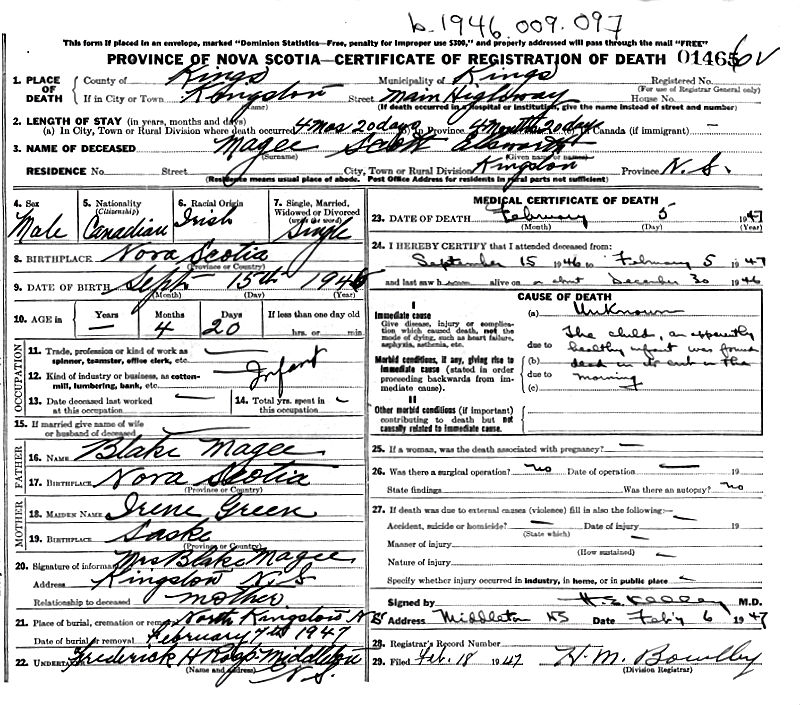 b.1946.009.097
This form if placed in an envelope, marked "Dominion Statistics—Free, penalty for improper use $300," and properly addressed will pass through the mail "FREE"
PROVINCE OF NOVA SCOTIA—CERTIFICATE OF REGISTRATION OF DEATH 01465
1. PLACE OF DEATH County of Kings Municipality of Kings Registered No.
(For use of Registrar General only)
If in City or Town Kingston Street Main Highway House No.
(Name) (If death occurred in a hospital or institution, give the name instead of street and number)
2. LENGTH OF STAY (in years, months and days)
(a) In City, Town or Rural Division where death occurred 4 Mos 20 days (b) in Province 4 Months 20 days (c) in Canada (if immigrant) —
3. NAME OF DECEASED Magee Scott Elsworth
(Surname) (Given name or names)
RESIDENCE No. Street City, Town or Rural Division Kingston Province N.S.
(Residence means usual place of abode. Post Office Address for residents in rural parts not sufficient)
4. Sex Male
5. Nationality (Citizenship) Canadian
6. Racial Origin Irish
7. Single, Married, Widowed or Divorced (write the word) Single
8. BIRTHPLACE Nova Scotia
(Province or Country)
9. DATE OF BIRTH Sept 15th 1946
(Month) (Day) (Year)
10. AGE in Years — Months 4 Days 20 If less than one day old
hrs. or min.
OCCUPATION
11. Trade, profession or kind of work as spinner, teamster, office clerk, etc. —
12. Kind of industry or business, as cotton-mill, lumbering, bank, etc. Infant
13. Date deceased last worked at this occupation — 14. Total yrs. spent in this occupation —
15. If married give name of wife or husband of deceased —
FATHER
16. NAME Blake Magee
17. BIRTHPLACE Nova Scotia
(Province or Country)
MOTHER
18. MAIDEN NAME Irene Green
19. BIRTHPLACE Saske
(Province or Country)
20. Signature of informant Mrs Blake Magee
Address Kingston N.S
Relationship to deceased mother
21. Place of burial, cremation or removal North Kingston N S
Date of burial or removal February 7th 1947
22. UNDERTAKER Frederick H Middleton
(Name and address) N.S.
MEDICAL CERTIFICATE OF DEATH
23. DATE OF DEATH February 5 1947
(Month) (Day) (Year)
24. I HEREBY CERTIFY that I attended deceased from:
September 15 1946 to February 5 1947
and last saw h alive on about December 30 1946
CAUSE OF DEATH
I
Immediate cause
Give disease, injury or complication which caused death, not the mode of dying, such as heart failure, asphyxia, asthenia, etc.
(a) Unknown
due to The child, an apparently
(b) healthy infant was found
due to dead in its crib in the
(c) morning
Morbid conditions, if any, giving rise to immediate cause (stated in order proceeding backwards from immediate cause).
II
Other morbid conditions (if important) contributing to death but not causally related to immediate cause.
25. If a woman, was the death associated with pregnancy? —
26. Was there a surgical operation? no Date of operation — 19
State findings Was there an autopsy? no
27. If death was due to external causes (violence) fill in also the following:—
Accident, suicide or homicide? — Date of injury — 19
(State which)
Manner of injury —
(How sustained)
Nature of injury —
Specify whether injury occurred in industry, in home, or in public place —
Signed by H. E. Kelley M.D.
Address Middleton NS Date Feb'y 6 1947
28. Registrar's Record Number
29. Filed Feb. 18 1947 H. M. Bowlby
(Division Registrar)